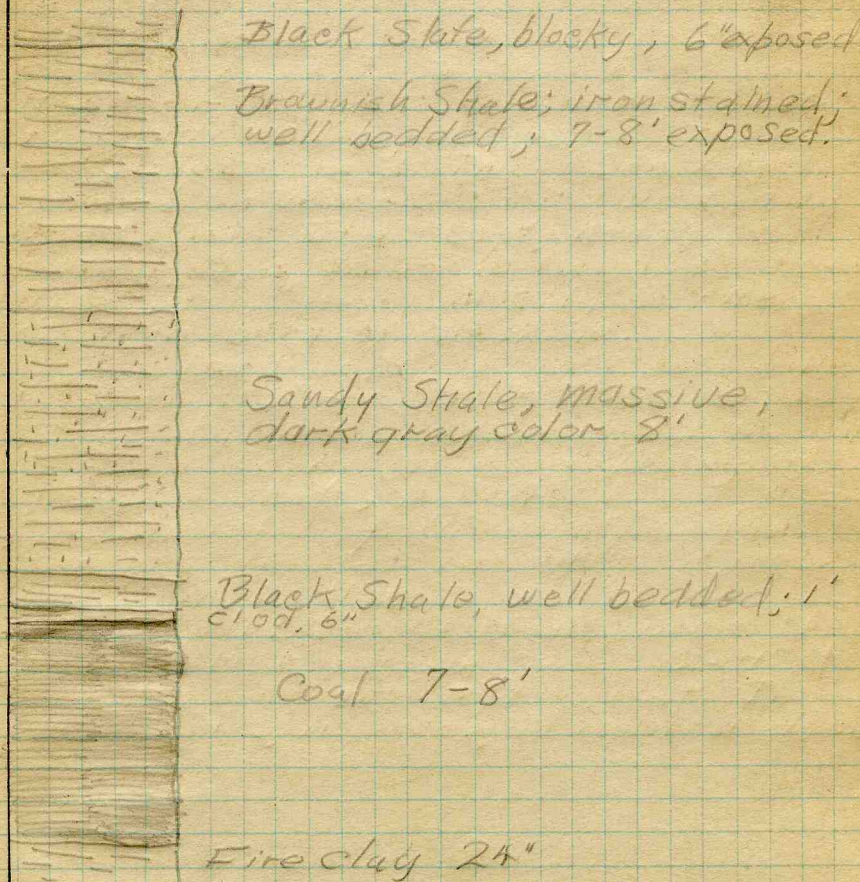 Black Slate, blocky, 6" exposed
Brownish Shale; iron stained;
well bedded; 7-8' exposed.
Sandy Shale, massive,
dark gray color 8'
Black Shale, well bedded; 1'
clod. 6"
Coal 7-8'
Fire clay 24"